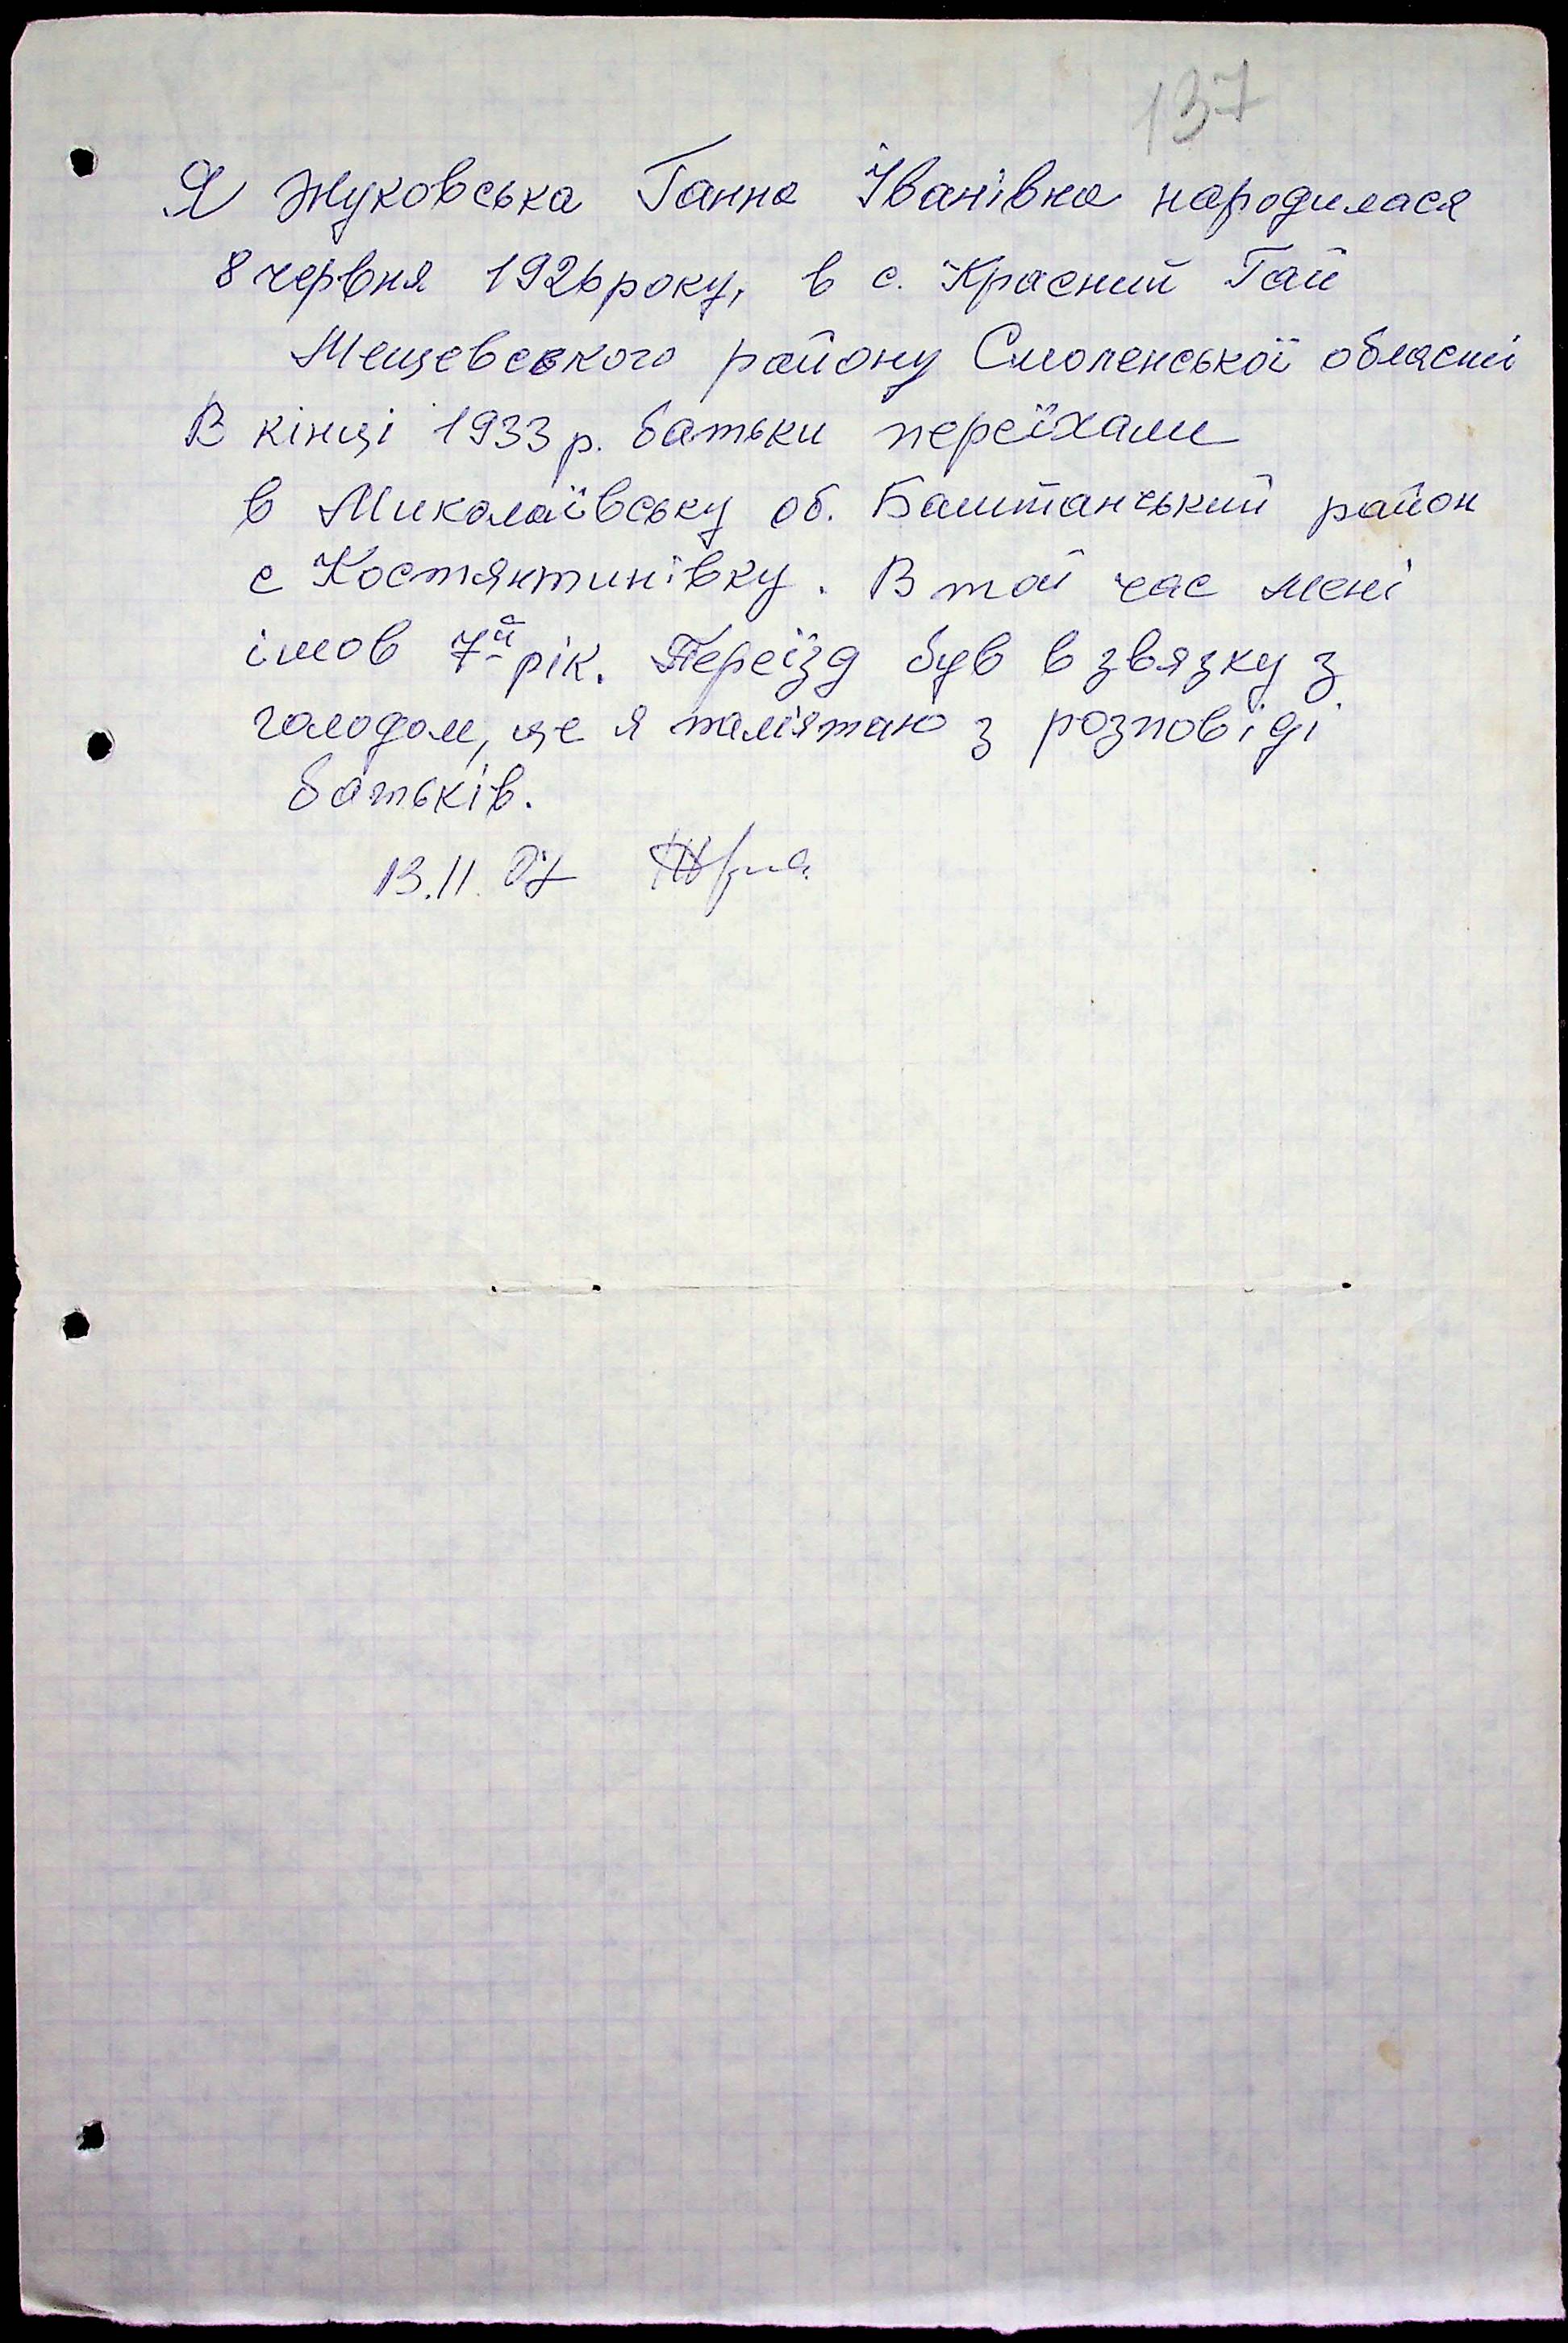 137
Я Жуковська Ганна Іванівна народилася
8 червня 1926 року, в с. Красний Гай
Мещевського району Смоленської області
В кінці 1933 р. батьки переїхали
в Миколаївську об. Баштанський район
с Костянтинівку. В той час мені
ішов 7й рік. Переїзд був в звязку з
голодом, це я памʼятаю з розповіді
батьків.
13.11.07